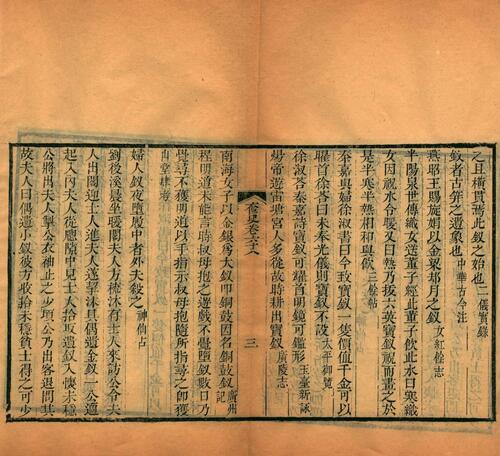 之且橫貫焉此釵之始也 二儀實錄
釵者古笄之遺象也 中華古今注
燕昭王賜旋娟以金梁却月之釵 女紅餘志
半陽泉世傳織女送董子經此董子飲此水曰寒織
女因祝水令暖又曰熱乃拔六英寶釵祝而畫之於
是半寒半熱相和與飲 三餘帖
秦嘉與婦徐淑書曰今致寶釵一隻價值千金可以
耀首徐答曰未奉光儀則寶釵不設 太平御覽
徐淑答秦嘉詩寶釵可耀首明鏡可鑑形 玉臺新詠
煬帝遊雷塘宮人多從故時耕出寶釵 廣陵志
奩史卷六十八
三
南海女子以金銀爲大釵叩銅鼓因名銅鼓釵 廣州記
程明道未能言時叔母抱之遊戲不覺墮釵數日乃
覺尋不獲明道以手指示叔母抱隨所指尋之卽獲
山堂肆考
婦人釵夜墮髮中者外夫殺之 神仙占
劉後溪晨坐暖閣夫人方梳沐有士人來訪公令夫
人出閣迎士人進夫人遂挈沐具偶遺金釵一公適
起入內夫人從牕隙中見士人拾取遺釵入懷未穩
公將出夫人掣公衣袖止之少頃公乃出客退問其
故夫人曰偶遺小釵彼方收拾未穩貧士得之可少